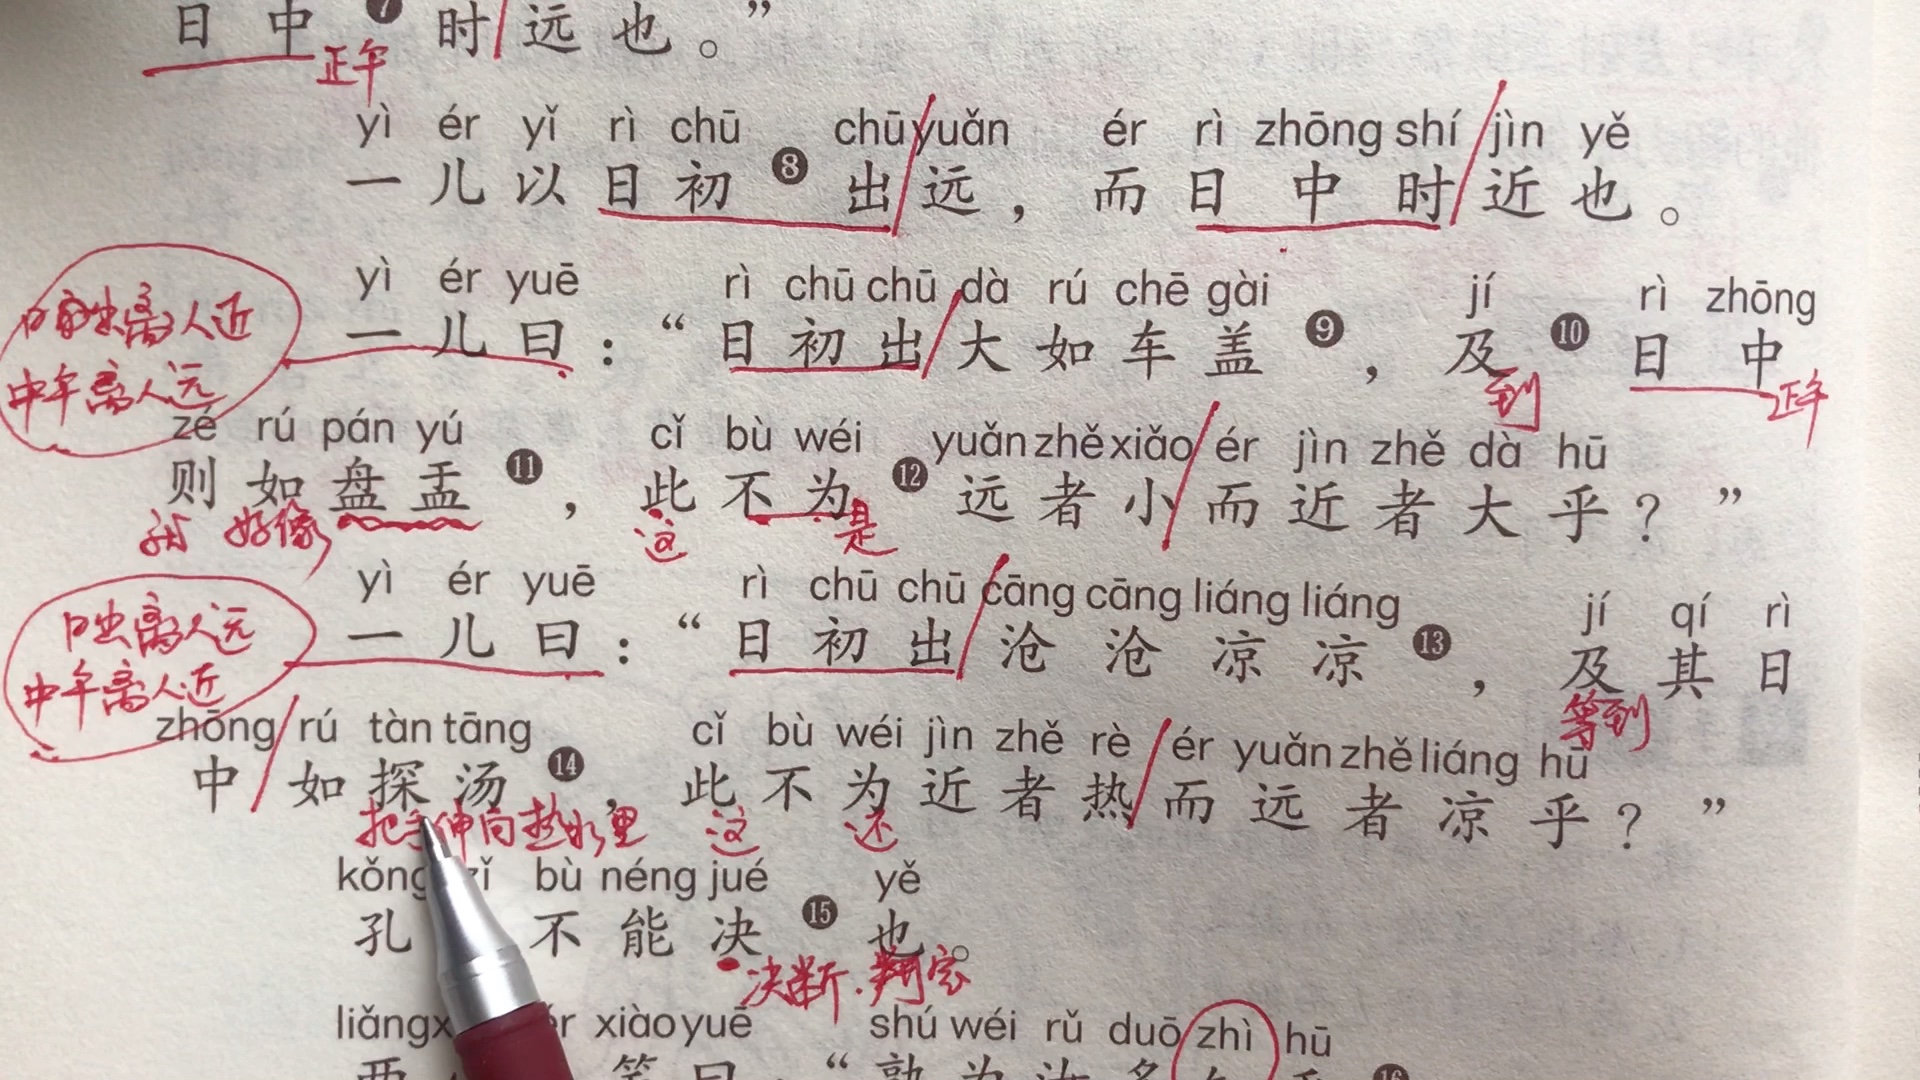 日中❼时远也。”
正午
yì ér yǐ rì chū chū yuǎn ér rì zhōng shí jìn yě
一儿以日初❽出远，而日中时近也。
yì ér yuē rì chū chū dà rú chē gài jí rì zhōng
一儿曰：“日初出大如车盖❾，及❿日中
离人近
中午离人远
到
正午
zé rú pán yú cǐ bù wéi yuǎn zhě xiǎo ér jìn zhě dà hū
则如盘盂⓫，此不为⓬远者小而近者大乎？”
好像
这
是
yì ér yuē rì chū chū cāng cāng liáng liáng jí qí rì
一儿曰：“日初出沧沧凉凉⓭，及其日
日出离人远
中午离人近
等到
zhōng rú tàn tāng cǐ bù wéi jìn zhě rè ér yuǎn zhě liáng hū
中如探汤⓮，此不为近者热而远者凉乎？”
把手伸向热水里
这
还
kǒng zǐ bù néng jué yě
孔 不能决⓯也。
决断.判定
liǎng xiào yuē shú wéi rǔ duō zhì hū
两 笑曰：“孰为汝多 乎⓰